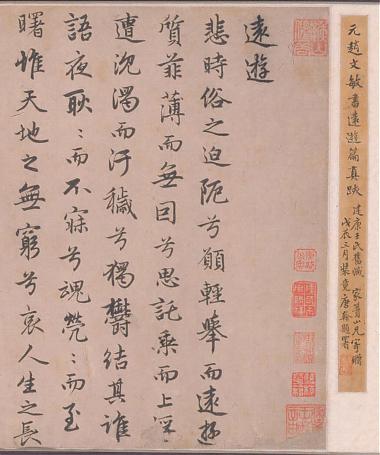 元趙文敏書遠遊篇真跡
建康王氏舊藏 家蕭山兄寄贈
戊辰三月裝竟唐翰題署
遠遊
悲時俗之迫阨兮願輕舉而遠遊
質菲薄而無因兮思託乘而上浮
遭沈濁而汙穢兮獨鬱結其誰
語夜耿〻而不寐兮魂煢〻而至
曙惟天地之無窮兮哀人生之長